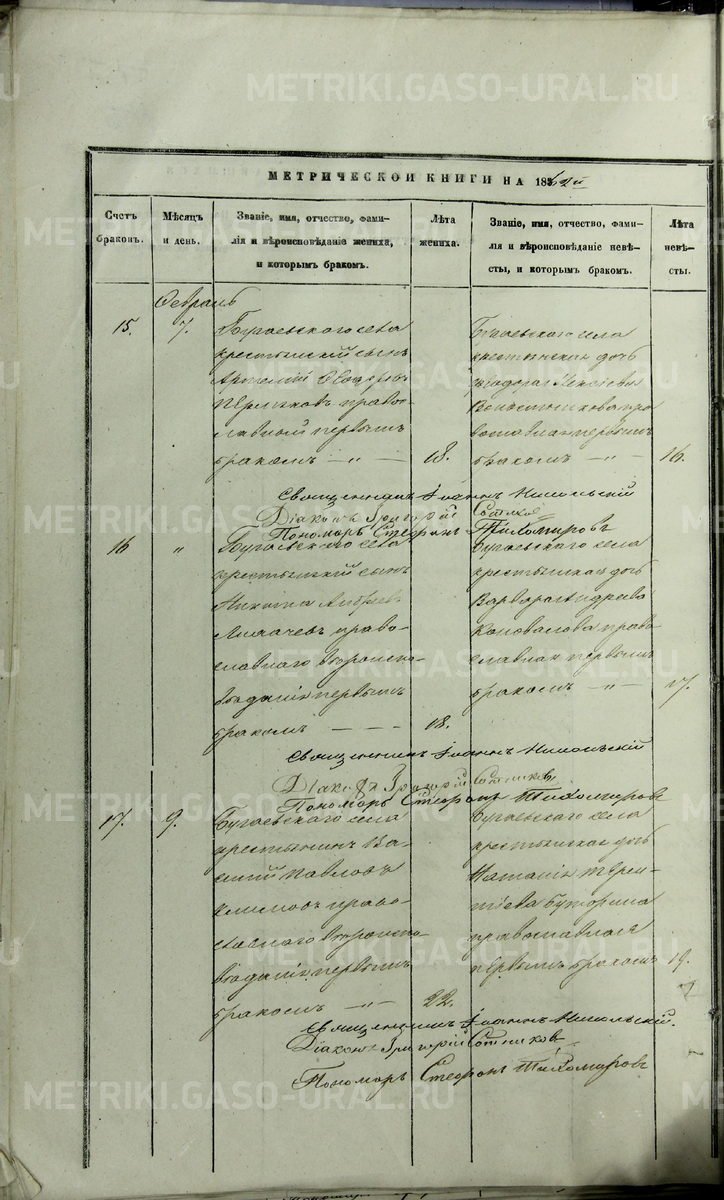 МЕТРИЧЕСКОЙ КНИГИ НА 1862й
Счетъ браковъ.
Мѣсяцъ и день.
Званіе, имя, отчество, фамилія и вѣроисповѣданіе жениха, и которымъ бракомъ.
Лѣта жениха.
Званіе, имя, отчество, фамилія и вѣроисповѣданіе невѣсты, и которымъ бракомъ.
Лѣта невѣсты.
Февраль
15. 7. Бугаевского села
крестьянский сынъ
православной первымъ
бракомъ — „ — 18.
Бугаевского села
крестьянская дочь
православная первымъ
бракомъ — „ — 16.
Священникъ Іоаннъ Никольскій
Діаконъ Григорій Сотников
Пономарь Стефанъ Тихомировъ
16 „ Бугаевского села
крестьянский сынъ
Никита
православного вѣроиспо-
вѣданія первымъ
бракомъ — — — 18.
Бугаевского села
крестьянская дочь
Варвара Андреева
Коновалова право-
славная первымъ
бракомъ — „ — 17.
Священникъ Іоаннъ Никольскій
Діаконъ Григорій Сотников
Пономарь Стефанъ Тихомировъ
17. 9. Бугаевского села
крестьянинъ Ва-
силий Павловъ
Климовъ право-
славного вѣроиспо-
вѣданія первымъ
бракомъ — „ — 22.
Бугаевского села
крестьянская дочь
Наталія Терен-
тіева Буторина
православная
первымъ бракомъ 19.
Священникъ Іоаннъ Никольскій.
Діаконъ Григорій Сотников
Пономарь Стефанъ Тихомировъ
METRIKI.GASO-URAL.RU